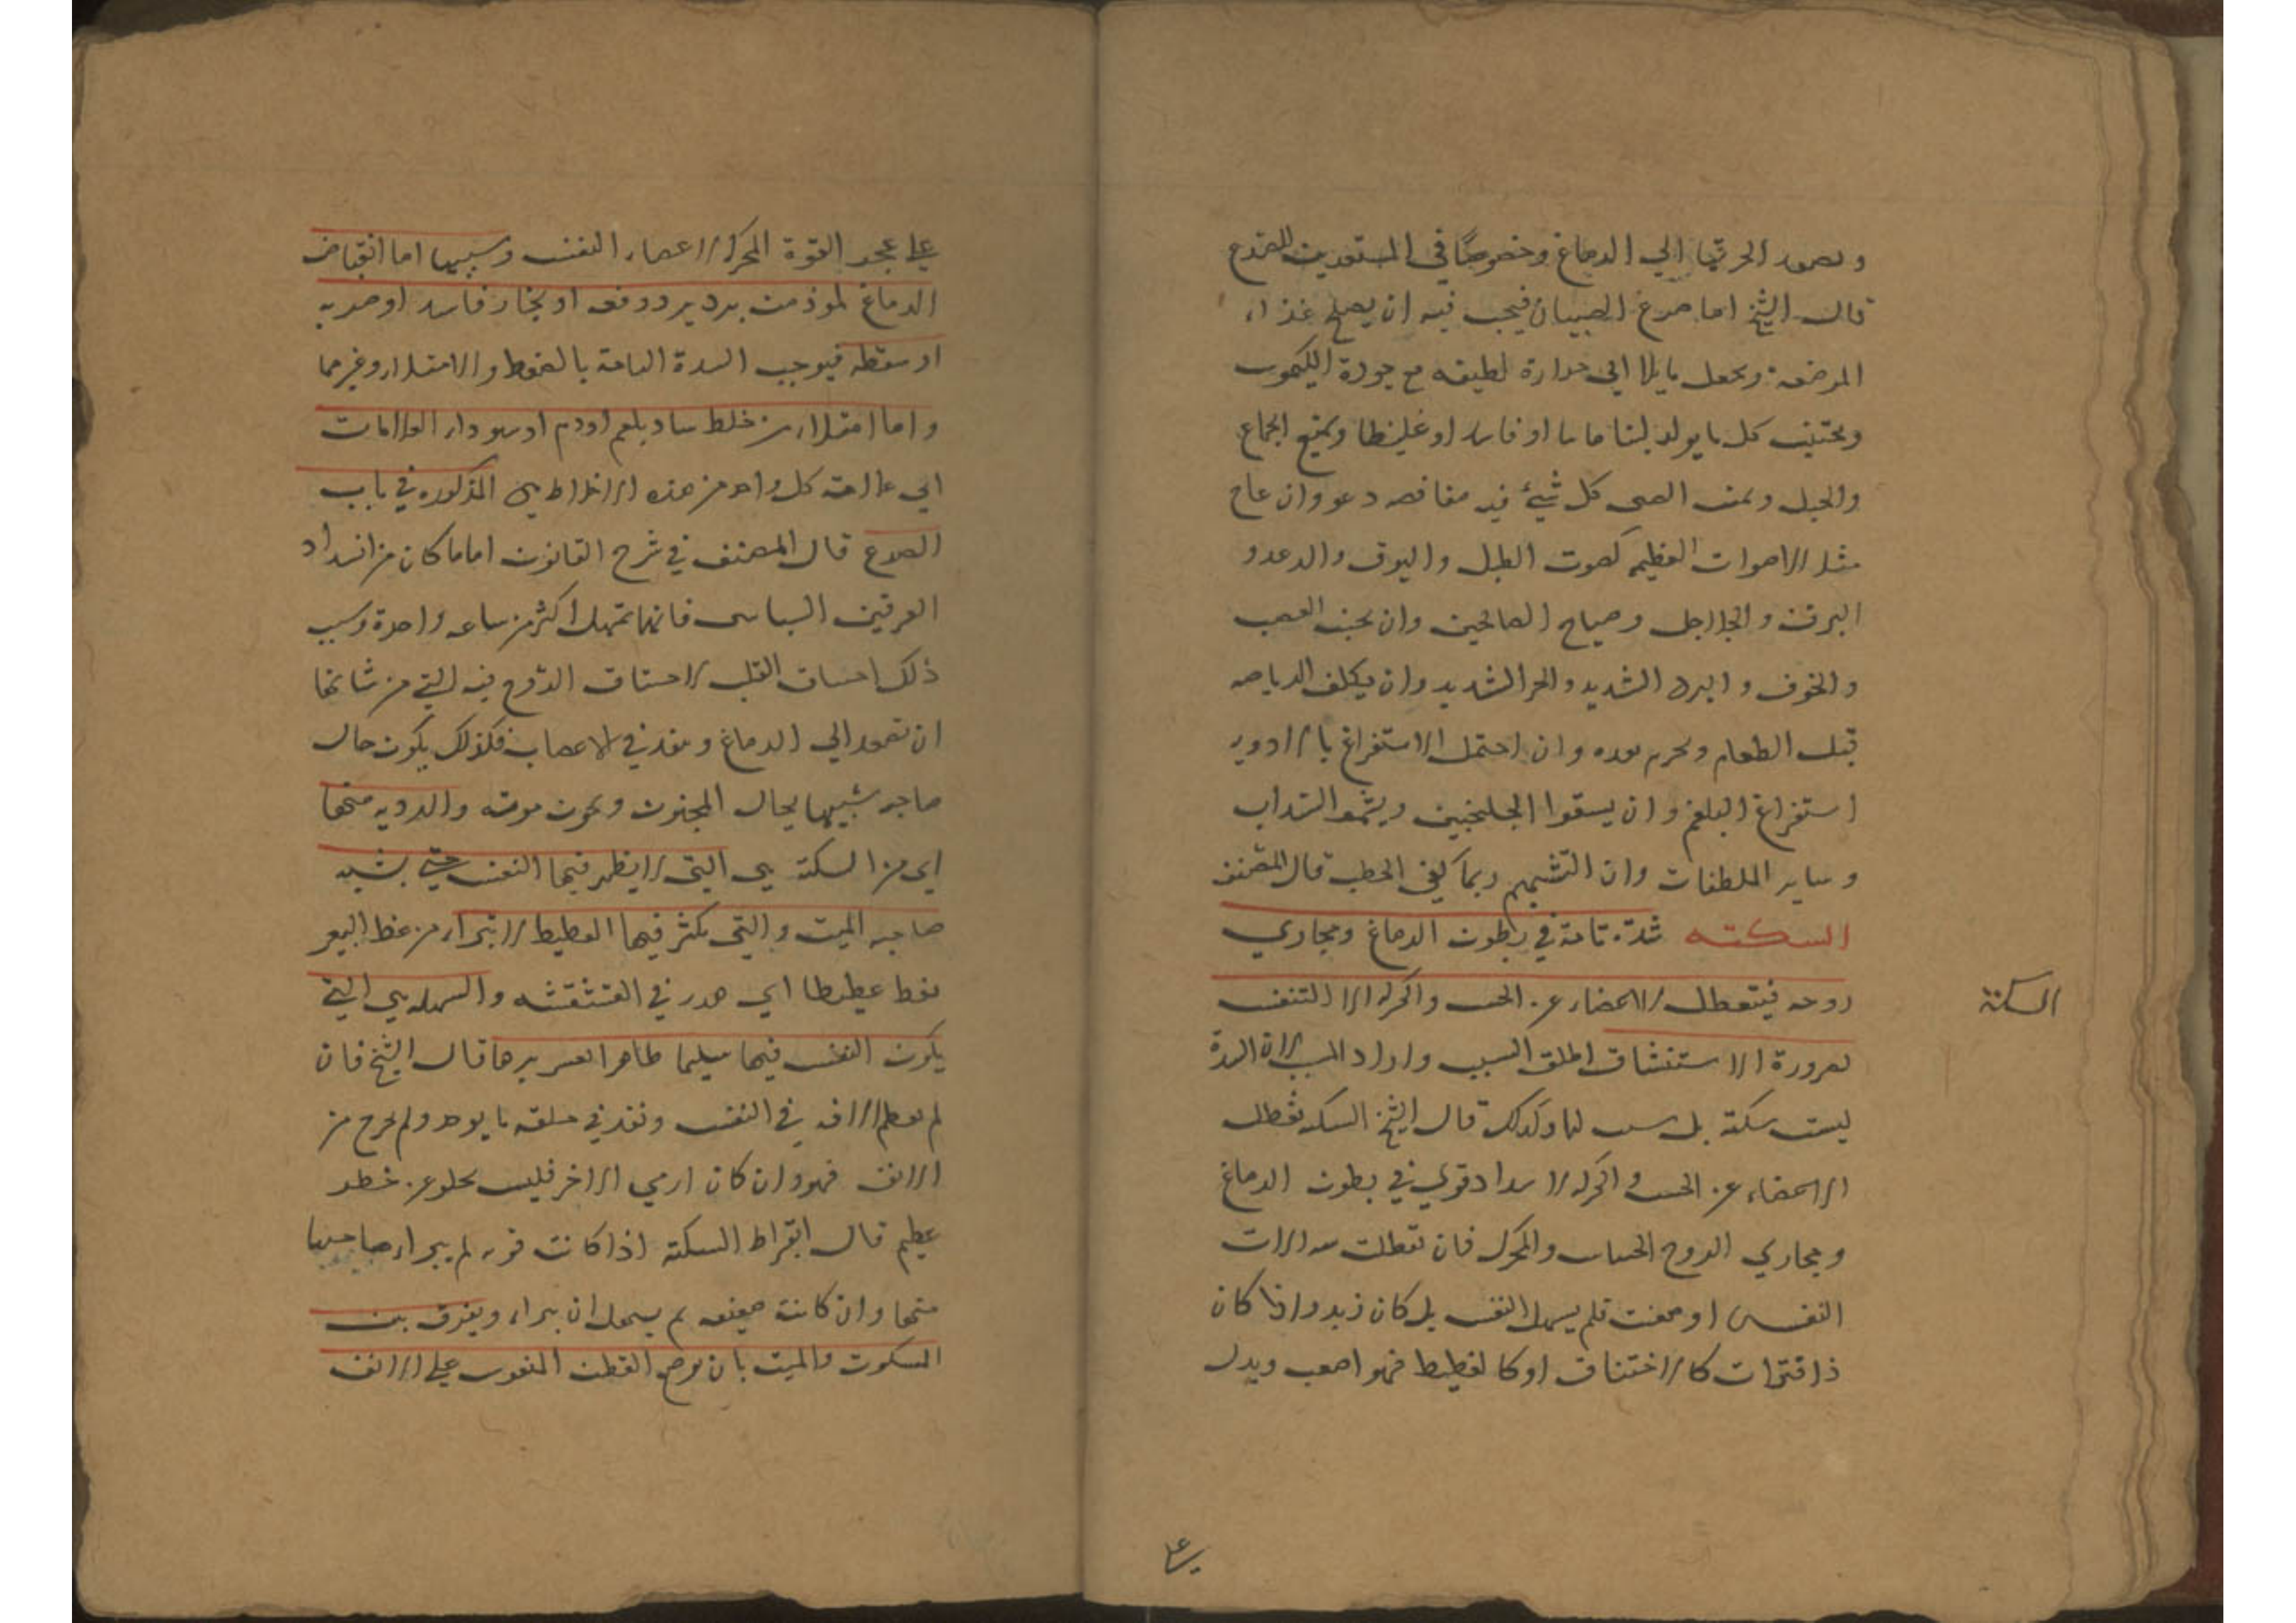 وتصعد الحرتها الي الدماغ وخصوصًا في المستعدين للصرع
قال الشيخ اما صرع الصبيان فيجب فيه ان يصلح غذاء
المرضعه ويجعل مايلا الي حرارة لطيفه مع جودة الكيموس
ويجتنب كل ما يولد لبنا مايا او فاسدا او غليظا ويمنع الجماع
والحبل ويمنع الصبي كل شيئ فيه مغافصه
مثل الاصوات العظيمه كصوت الطبل والبوق والرعد و
البرق والجلاجل وصياح الصائحين وان يجنب الغضب
والخوف والبرد الشديد والحر الشديد وان يكلف الرياضه
قبل الطعام ويحرم بعده وان احتمل الاستفراغ بالادويه
استفراغ البلغم وان يسقوا الجلنجبين ويشموا السداب
وساير الملطفات وان التشميم ربما كفي الخطب قال المصنف
السكته سدة تامة في بطون الدماغ ومجاري
السكتة
روحه فيتعطل الاعضاء عن الحس والحركه الا التنفس
لضرورة الاستنشاق اطلق السبب واراد المسبب لان السدة
ليست سكتة بل سبب لها وكذلك قال الشيخ السكته تعطل
الاعضاء عن الحس والحركه لانسداد قوي في بطون الدماغ
ومجاري الروح الحساس والمحرك فان تعطلت معه الات
النفس او ضعفت فلم يسهل النفس بل كان زبد واذا كان
ذا فترات كالاختناق او كالغطيط فهو اصعب ويدل
علي
علي عجز القوة المحركه لاعضاء النفس وسببها اما انقباض
الدماغ لموذ من برد يرد دفعه او بخار فاسد او ضربه
او سقطه فيوجب السدة التامة بالضغط والامتلاء وغيرهما
واما امتلاء من خلط ساد بلغم او دم او سوداء والعلامات
اي علامة كل واحد من هذه الاخلاط هي المذكوره في باب
الصرع قال المصنف في شرح القانون اما ما كان من انسداد
العرقين السباتي فانها تمهل اكثر من ساعه واحدة وسبب
ذلك اختناق القلب لاحتباس الروح فيه التي من شانها
ان تصعد الي الدماغ وينفذ في الاعصاب فكذلك يكون حال
صاحبه شبيها بحال المجنون ويموت موته والرديه منها
اي من السكتة هي التي لا يظهر فيها النفس حتي يشبه
صاحبه الميت والتي يكثر فيها الغطيط لا تبراء من غط البعير
يغط غطيطا اي هدر في الشقشقه والسهله هي التي
يكون النفس فيها سليما ظاهرا لعسر برها قال الشيخ فان
لم تعظم الافه في النفس ونفذ في حلقه ما يوجر ولم يخرج من
الانف فهو وان كان ارجي الاخر فليس يخلو عن خطر
عظيم قال ابقراط السكتة اذا كانت قويه لم يبراء صاحبها
منها وان كانت ضعيفه لم يسهل ان يبراء ويفرق بين
المسكوت والميت بان يوضع القطن المنفوش علي الانف